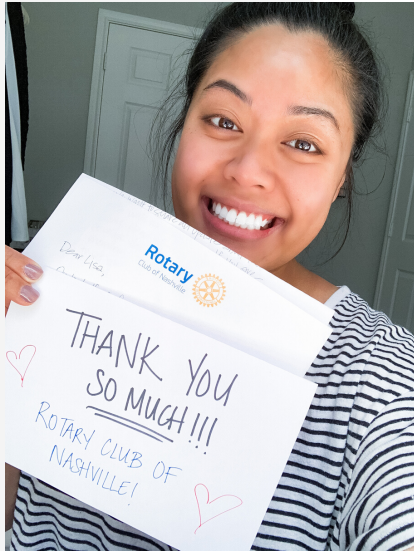 Dear Lisa,
Rotary
Club of Nashville
THANK YOU
SO MUCH!!!
ROTARY CLUB OF
NASHVILLE!